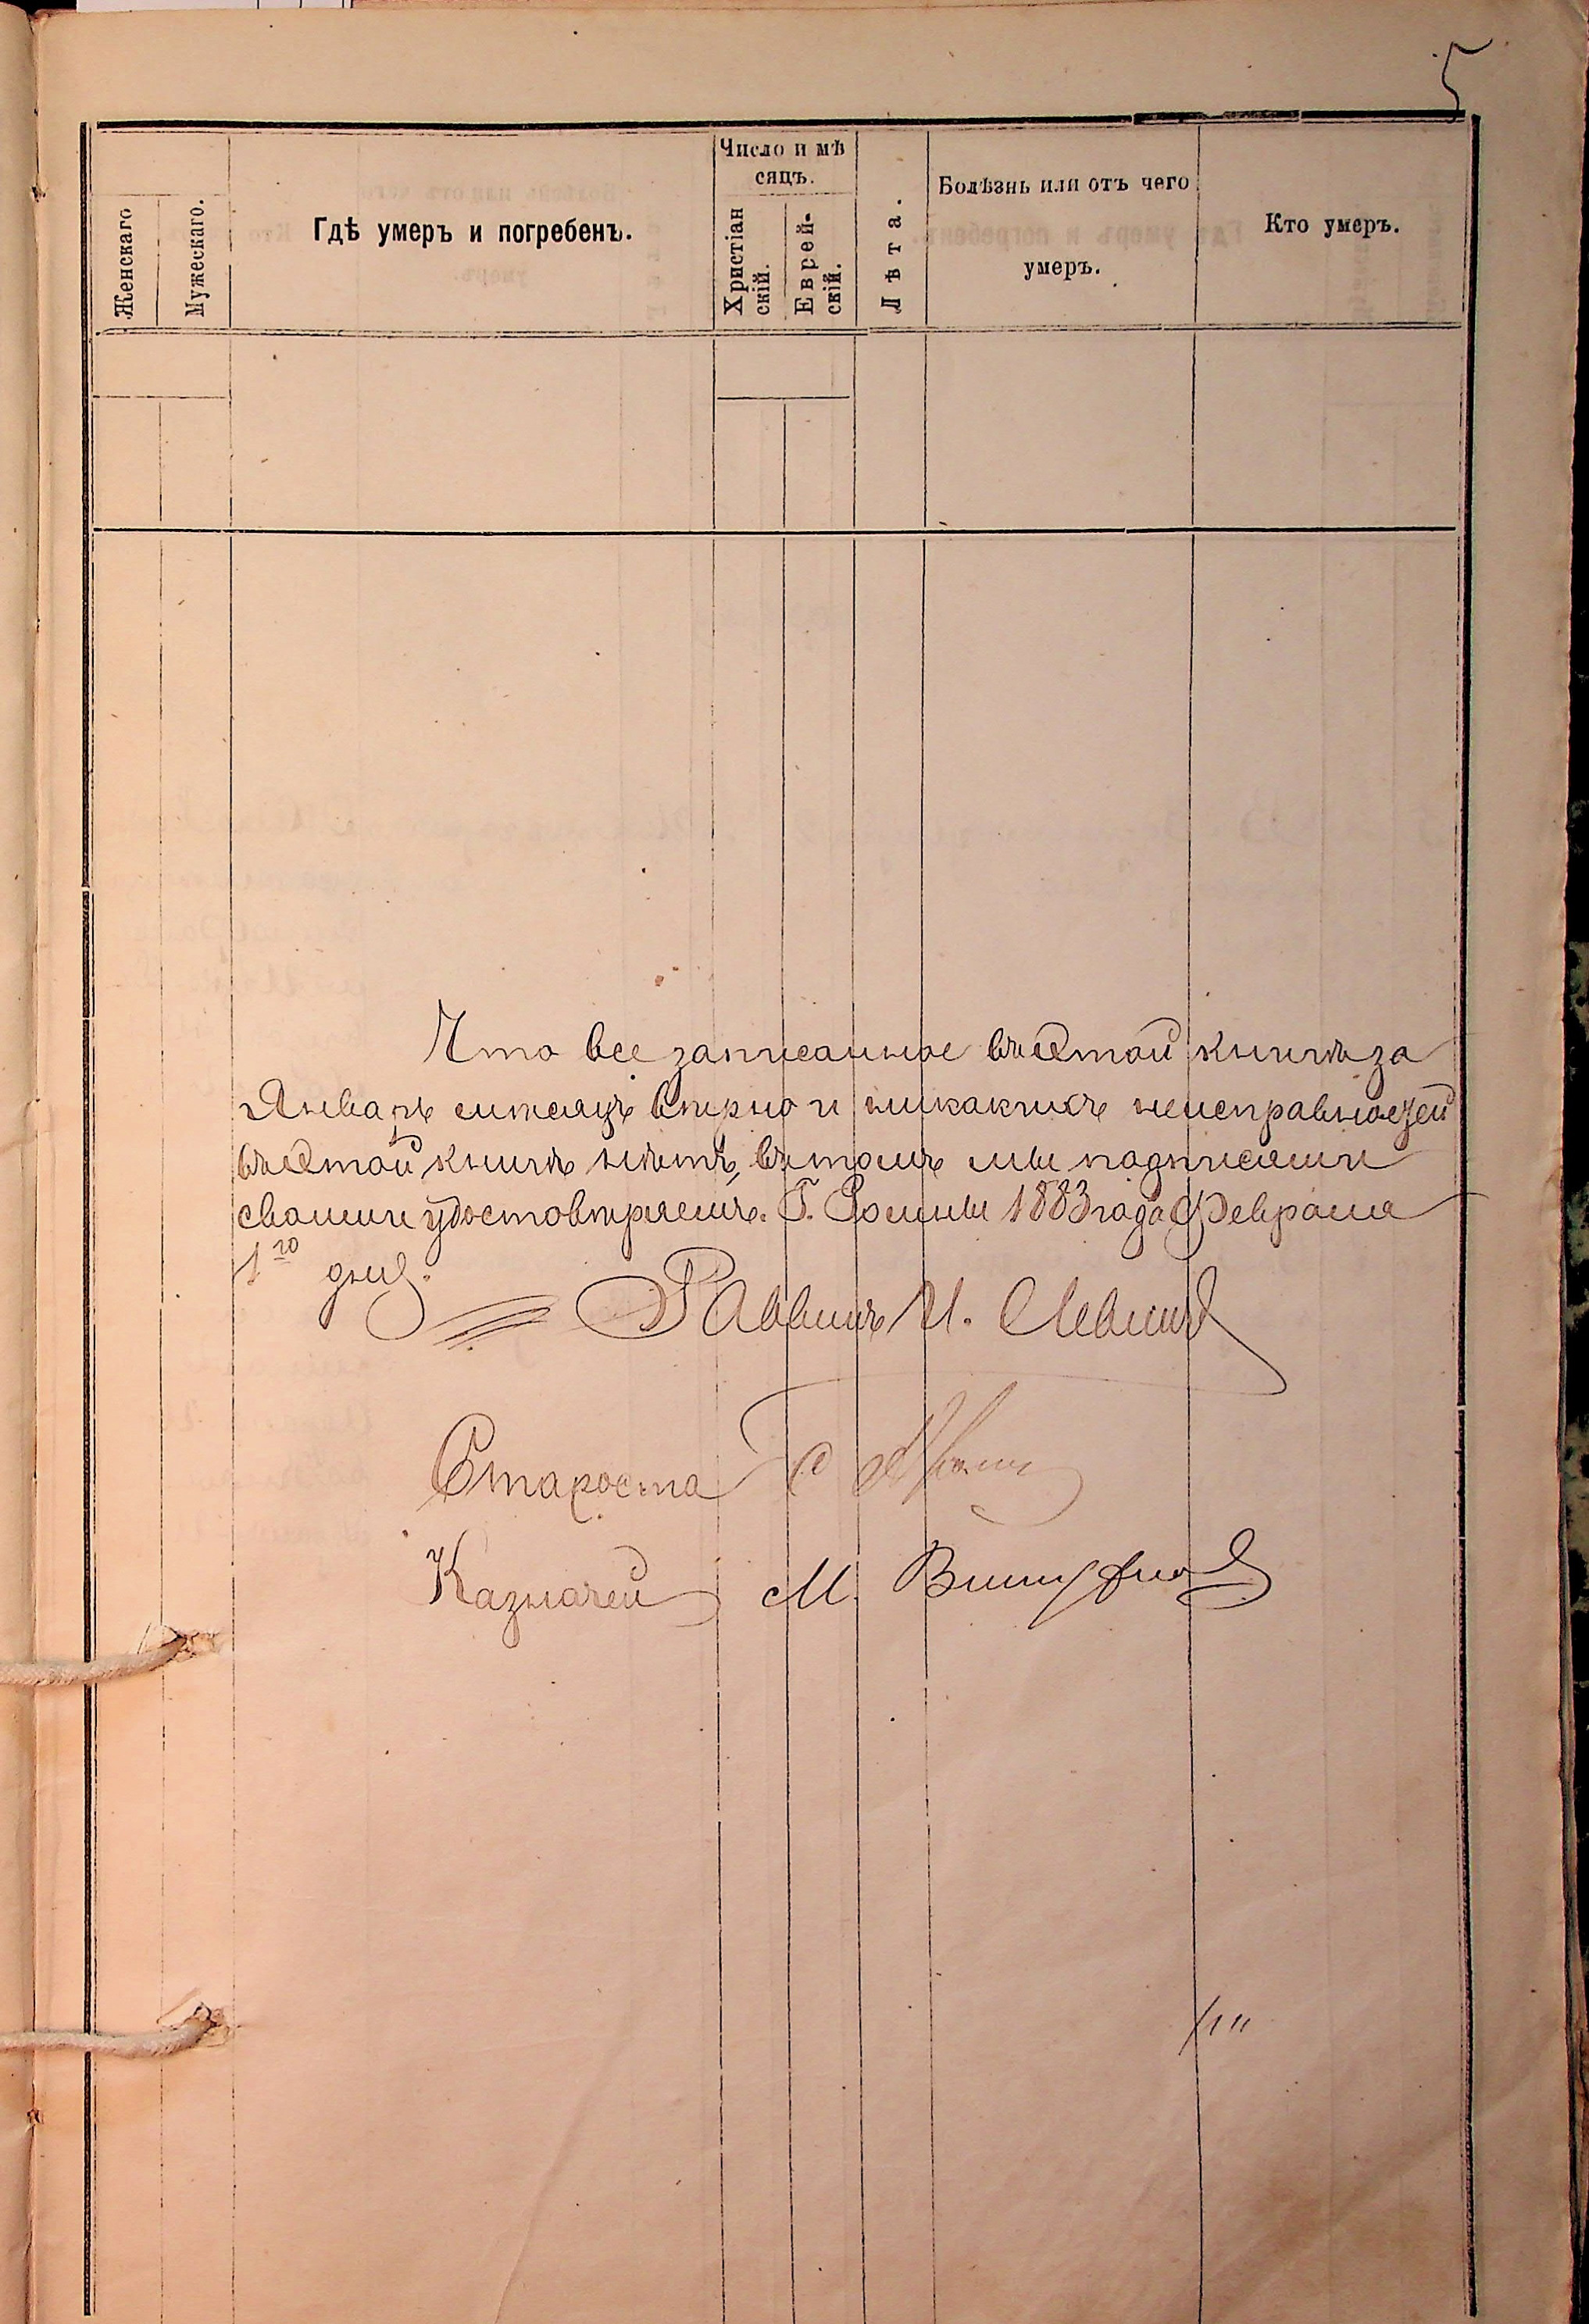 5
Женскаго
Мужескаго.
Гдѣ умеръ и погребенъ.
Число и мѣ
сяцъ.
Христіан
скій.
Еврей-
скій.
Лѣта.
Болѣзнь или отъ чего
умеръ.
Кто умеръ.
Что все записанное въ этой книгѣ за
Январь мѣсяцъ вѣрно и никакихъ неисправностей
въ этой книгѣ нѣтъ, въ томъ мы подписями
своими удостовѣряемъ. Г. Ромны 1883 года Февраля
1го дня.
Раввинъ И. Левинъ
Староста
Казначей М.